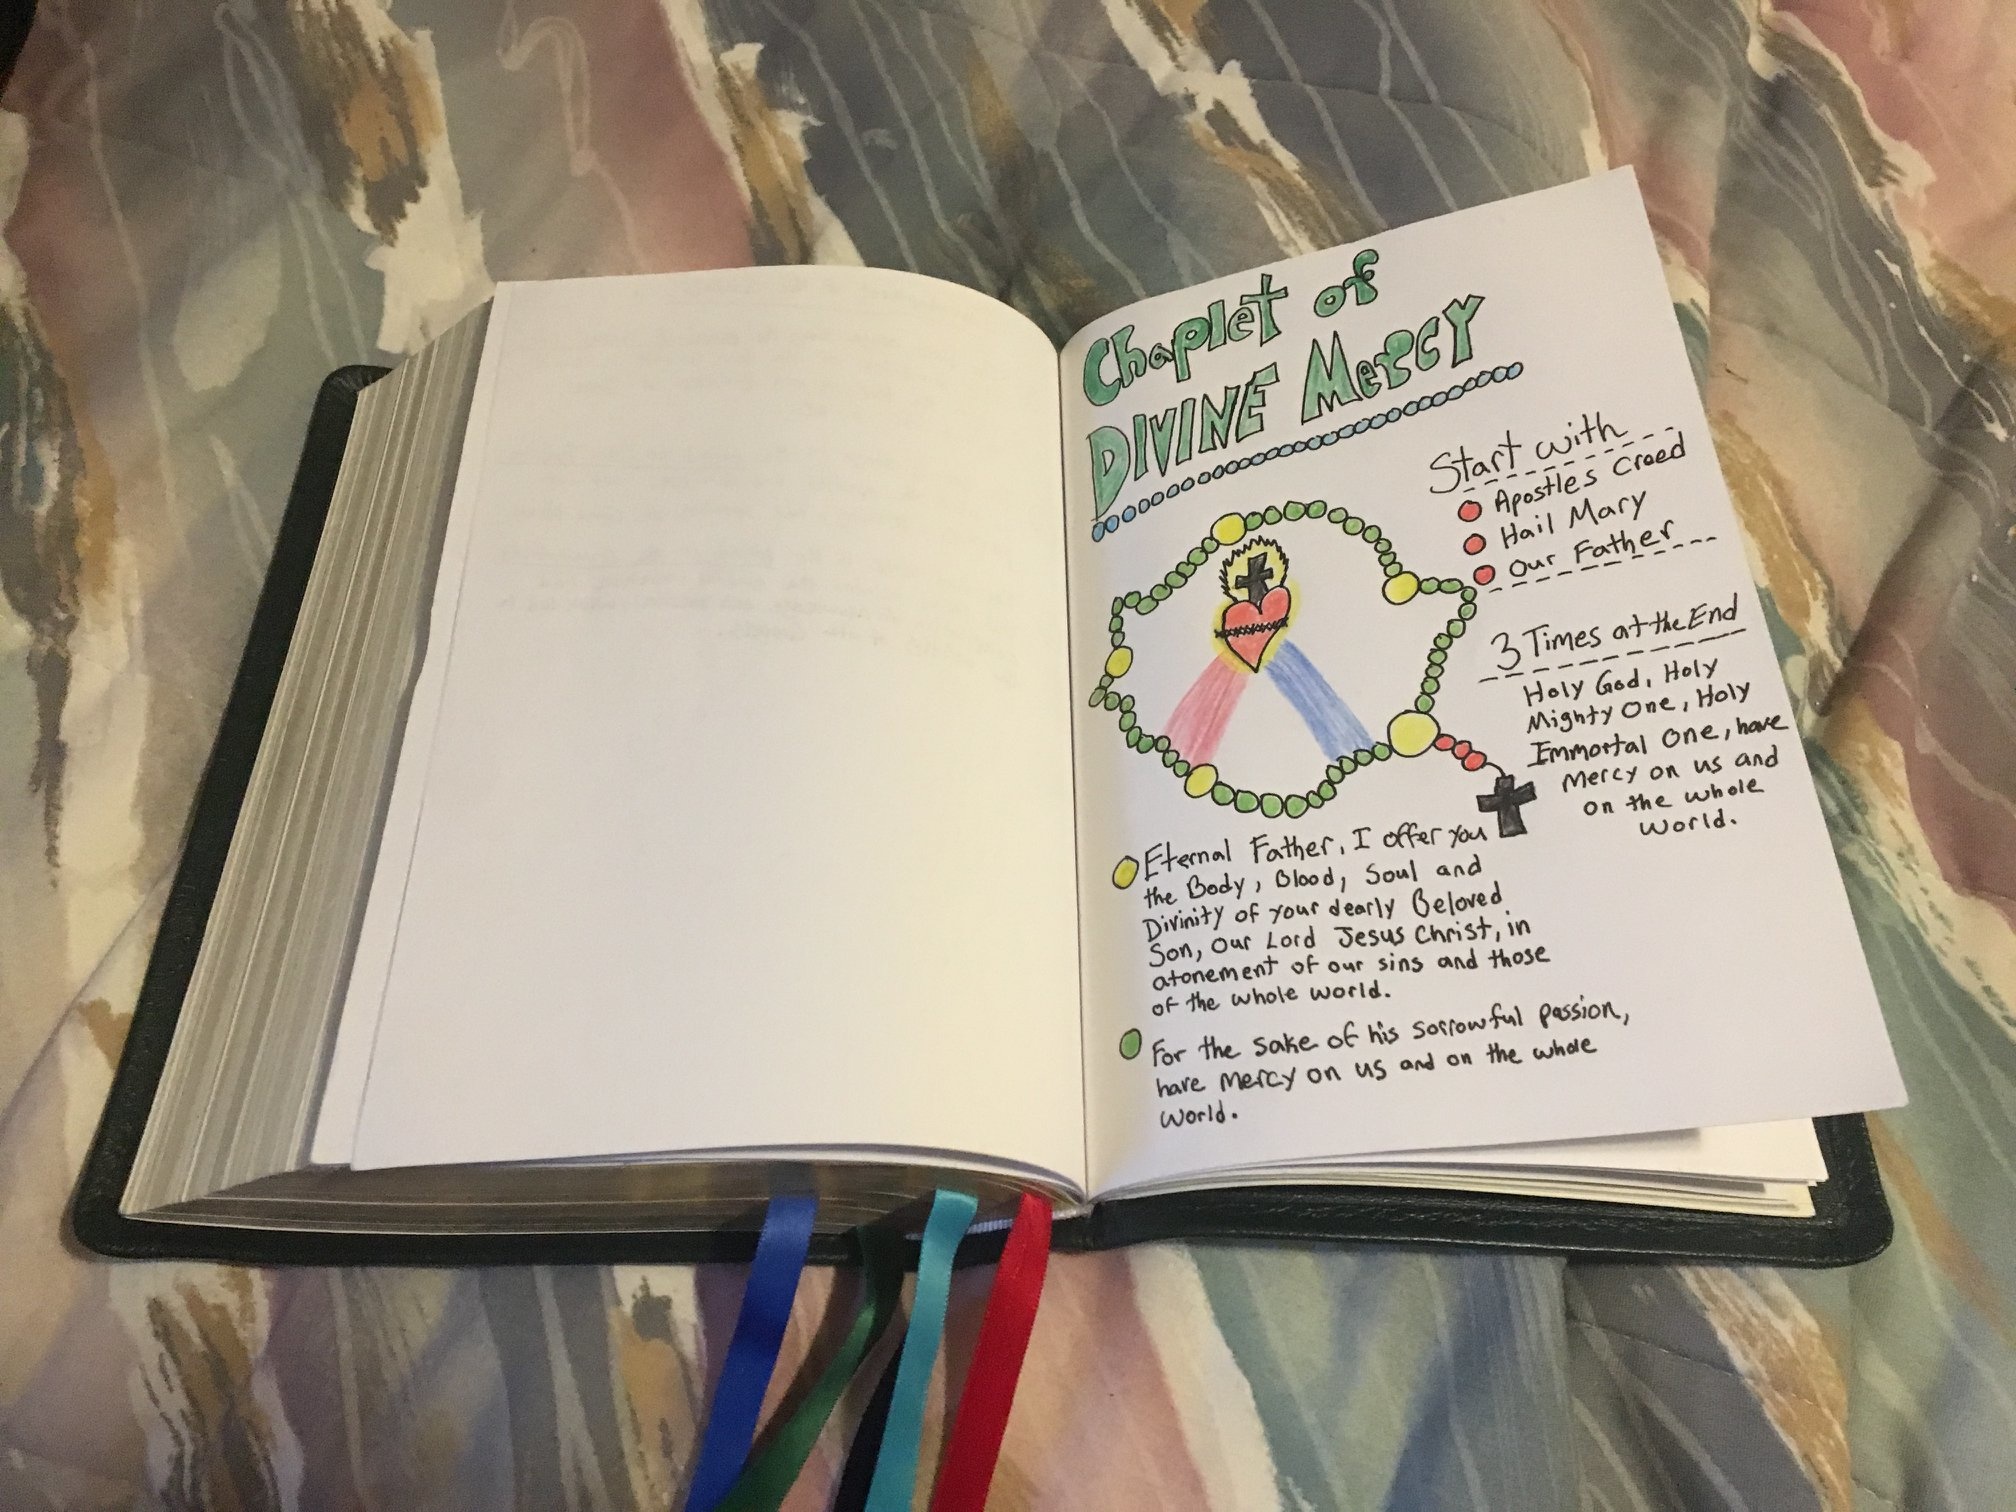 Chaplet of
DIVINE MercY
Start with
Apostles Creed
Hail Mary
Our Father
3 Times at the End
Holy God, Holy
Mighty One, Holy
Immortal One, have
Mercy on us and
on the whole
world.
Eternal Father, I offer you
the Body, Blood, Soul and
Divinity of your dearly Beloved
Son, Our Lord Jesus Christ, in
atonement of our sins and those
of the whole world.
For the sake of his sorrowful passion,
have Mercy on us and on the whole
world.